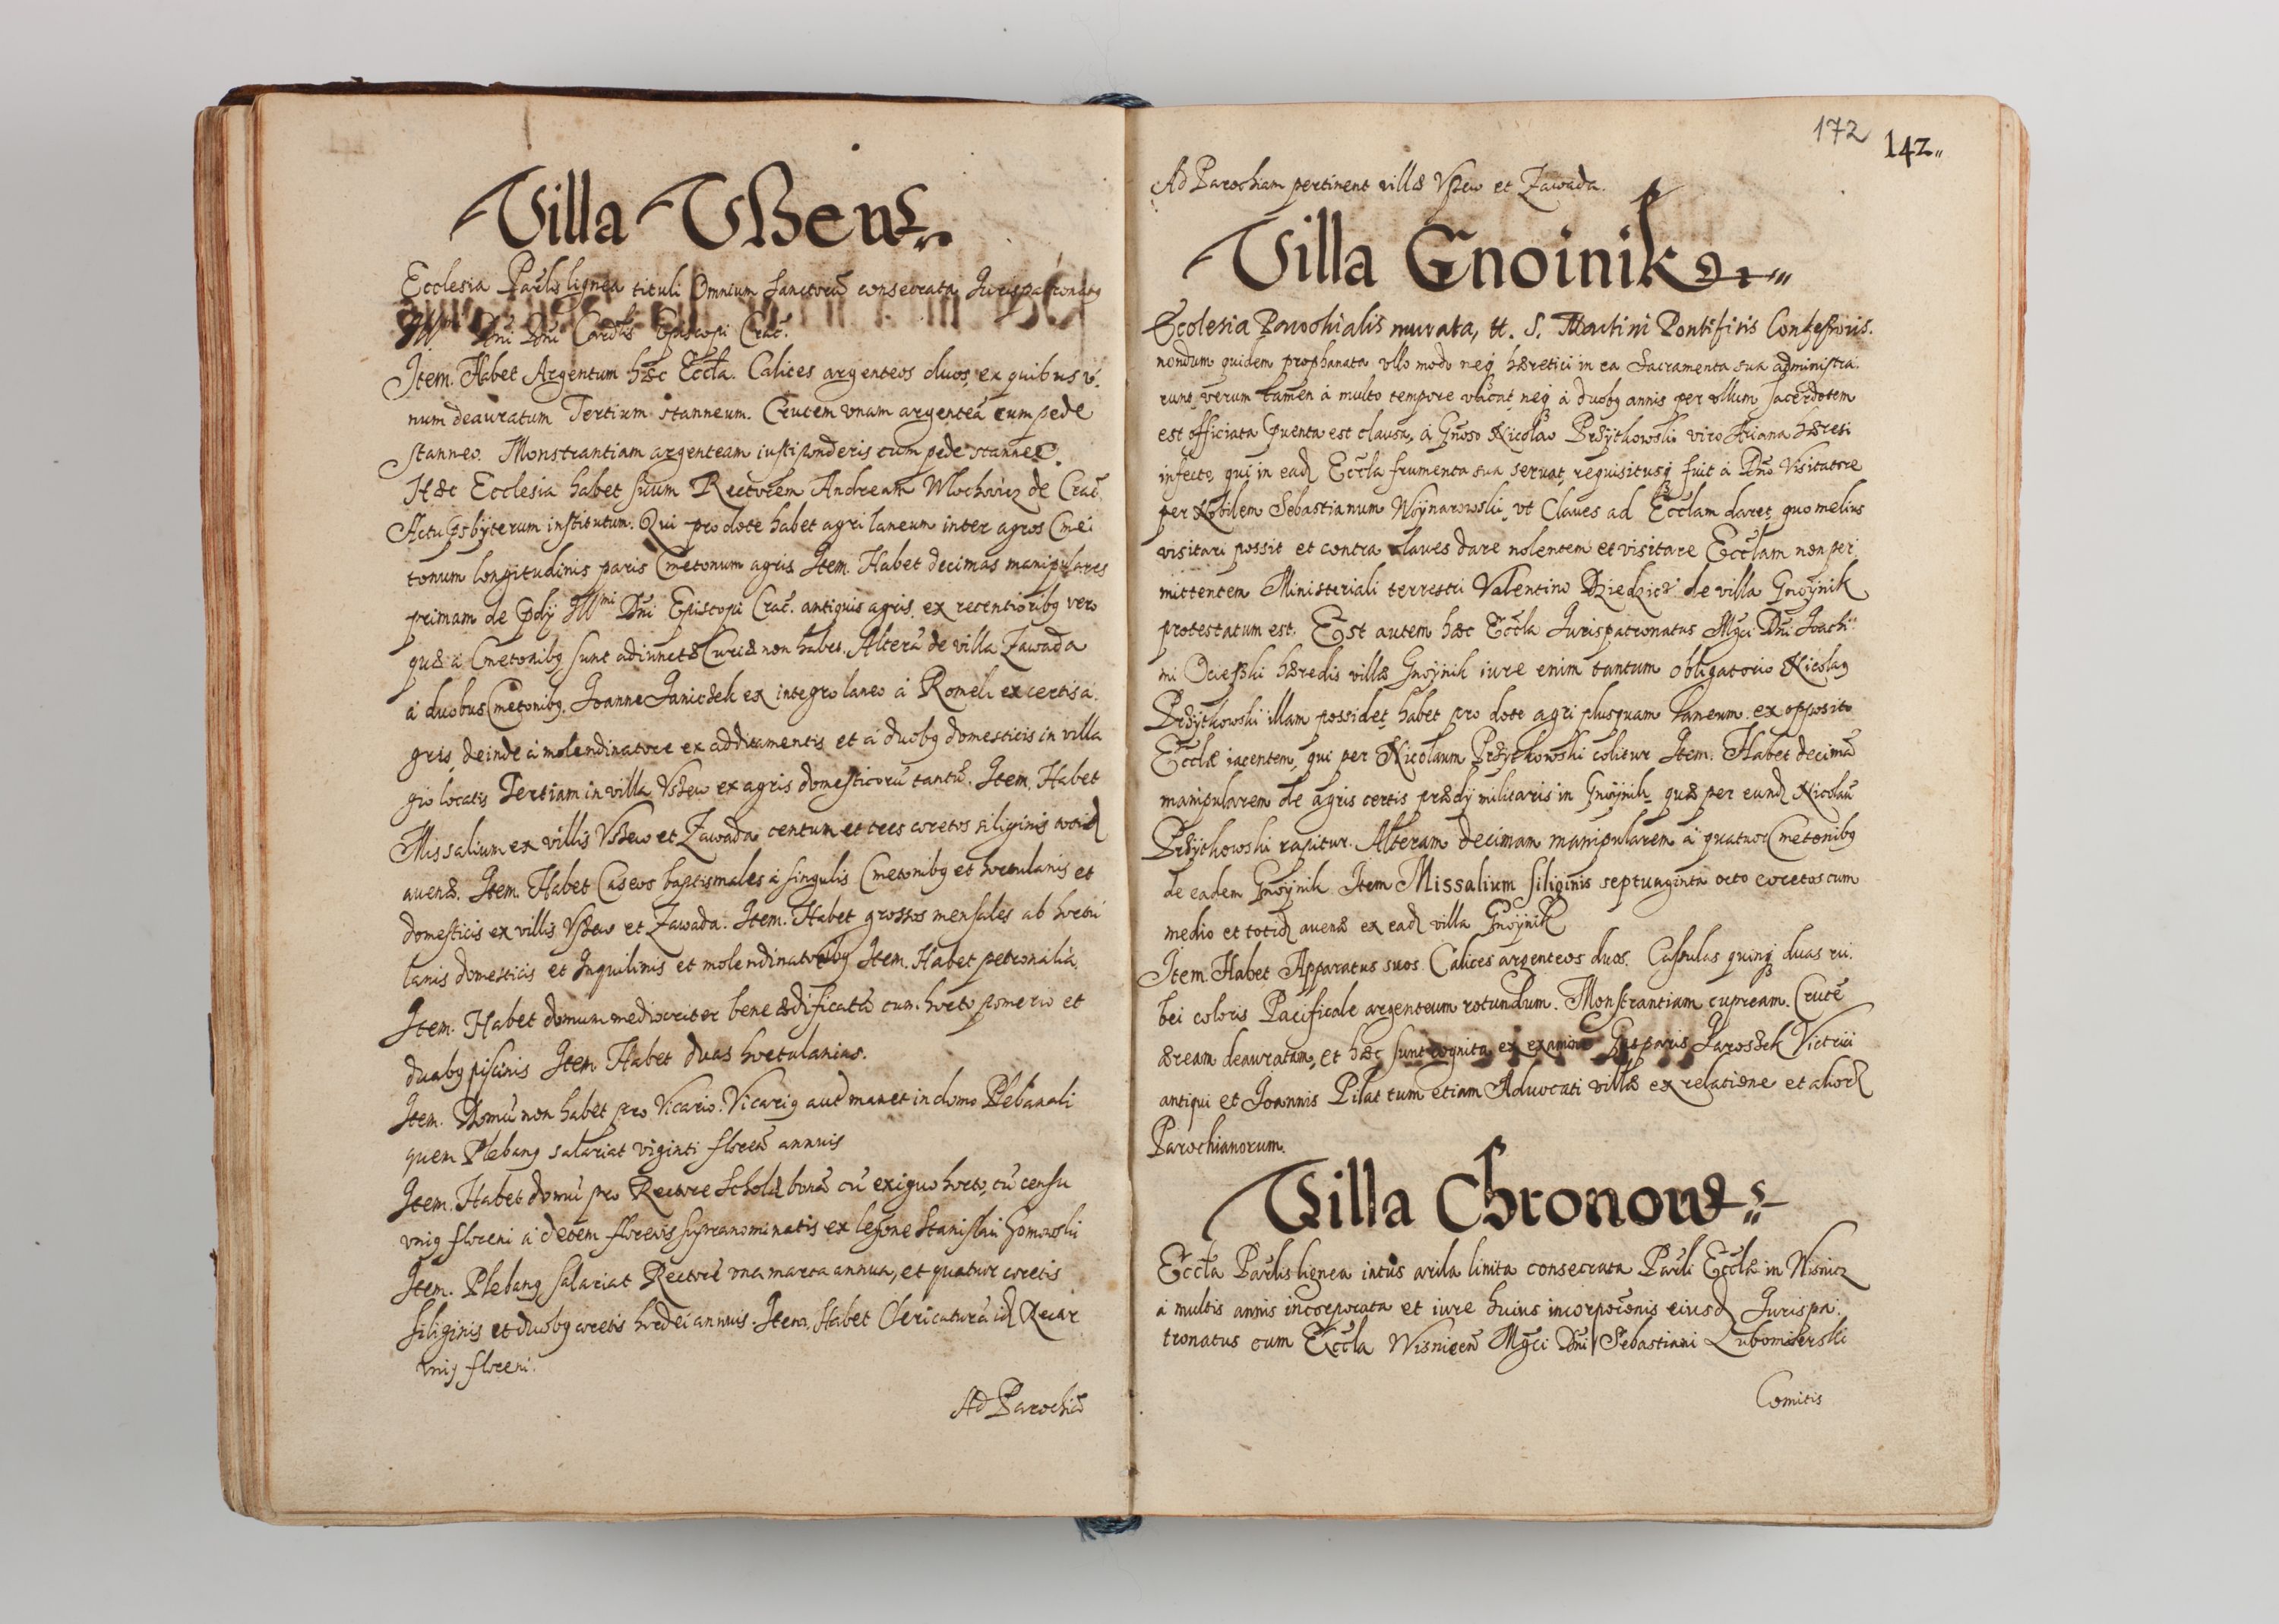 Villa Vszew
Ecclesia Parlis lignea tituli Omnium Sanctorũ consecrata Jurispatronatus
Illmi Dni Dni Cardlis Episcopi Crac.
Item. Habet Argentum hæc Eccla. Calices argenteos duos, ex quibus v¨
num deauratum Tertium stanneum. Crucem vnam argenteã cum pede
stanneo. Monstrantiam argenteam iusti ponderis cum pede stanneo.
Hæc Ecclesia habet suum Rectorem Andream Wlochowicz de Crac.
Actu Psbÿterum institutum. Qui pro dote habet agri laneum inter agros Cme¨
tonum longitudinis paris Cmetonum agris Item. Habet decimas manipulares
primam de Pdij Illmi Dni Episcopi Crac. antiquis agris, ex recentioribꝫ vero
quæ à Cmetonibꝫ sunt adiunctæ Curiæ non habet. Alterã de villa Zawada
à duobus Cmetonibꝫ. Joanne Janiczek ex integro laneo à Romek ex certis a¨
gris, deinde à molendinatore ex additamentis et à duobꝫ domesticis in villa
gio locatis Tertiam in villa Vszew ex agris domesticorũ tantũ. Item. Habet
Missalium ex villis Vszew et Zawada centum et tres coretos siliginis totid
auenæ. Item. Habet Caseos baptismales à singulis Cmetonibꝫ et hortulanis et
domesticis ex villis Vszew et Zawada. Item. Habet grossos mensales ab hortu¨
lanis domesticis et Inquilinis et molendinatoribꝫ Item. Habet petronalia.
Item. Habet domum mediocriter bene ædificatã cum horto pomerio et
duabꝫ piscinis Item Habet duas hortulanias.
Item. Domũ non habet pro Vicario. Vicarig aut manet in domo Plebanali
quem Plebang salariat viginti florẽ annuis
Item. Habet domũ pro Rectore Scholæ bonã cũ exiguo horto, cũ censu
vnig floreni à decem florenis supranominatis ex legone Stanislai Homowski
Item. Plebang salariat Rectorẽ vna marca annua, et quatuor coretis
siliginis et duobꝫ coretis hordei annuis. Item. Habet Clericaturã id Rector
vnig floreni.
Ad Parochiã
172 142
Ad Parochiam pertinent villæ Vszew et Zawada.
Villa Gnoinik
Ecclesia Parochialis murata, tt. S. Martini Pontificis Confessoris.
nondum quidem prophanata vllo modo neqꝫ hæretici in ea Sacramenta sua administra¨
runt, verum tamen à multo tempore vacat, neqꝫ à duobꝫ annis per vllum sacerdotem
est officiata Quenta est clausa, à Gnoso Nicolao Przÿtkowski viro Ariana hæresi
infecto, qui in ead Eccla frumenta sua seruat, requisitusqꝫ fuit à Dno Visitatore
per Nobilem Sebastianum Woÿnarowski, vt Claues ad Ecclam daret, quo melius
visitari possit et contra claues dare nolentem et visitare Ecclam non per¨
mittentem Ministeriali terrestri Valentino Dziedzicz de villa Gnoÿnik
protestatum est. Est autem hæc Eccla Jurispatronatus Mgci Dni Joachi¨
mi Ocieszki hæredis villæ Gnoÿnik iure enim tantum obligatorio Nicolaꝫ
Przÿtkowski illam possidet, habet pro dote agri plusquam laneum ex opposito
Ecclæ iacentem, qui per Nicolaum Przÿtkowski colitur Item. Habet decimã
manipularem de agris certis prædij militaris in Gnoÿnik, quæ per eund Nicolaũ
Przÿtkowski rapitur. Alteram decimam manipularem à quatuor Cmetonibꝫ
de eadem Gnoÿnik Item Missalium siliginis septuaginta octo coretos cum
medio et totid auenæ ex ead villa Gnoÿnik
Item. Habet Apparatus suos Calices argenteos duos. Casulas quinqꝫ duas ru¨
bei coloris Pacificale argenteum rotundum. Monstrantiam cupream. Crucẽ
æream deauratam, et hæc sunt cognita ex examine Gasparis Jaroszek Victrici
antiqui et Joannis Pilat tum etiam Aduocati villæ ex relatione et alior
Parochianorum.
Villa Chronow
Eccla Parlis lignea intus arila linita consecrata Parli Ecclæ in Wisnicz
à multis annis incorporata et iure huius incorporonis eiusd Jurispa¨
tronatus cum Eccla Wisnicen Mgci Dni Sebastiani Lubomierski
Comitis